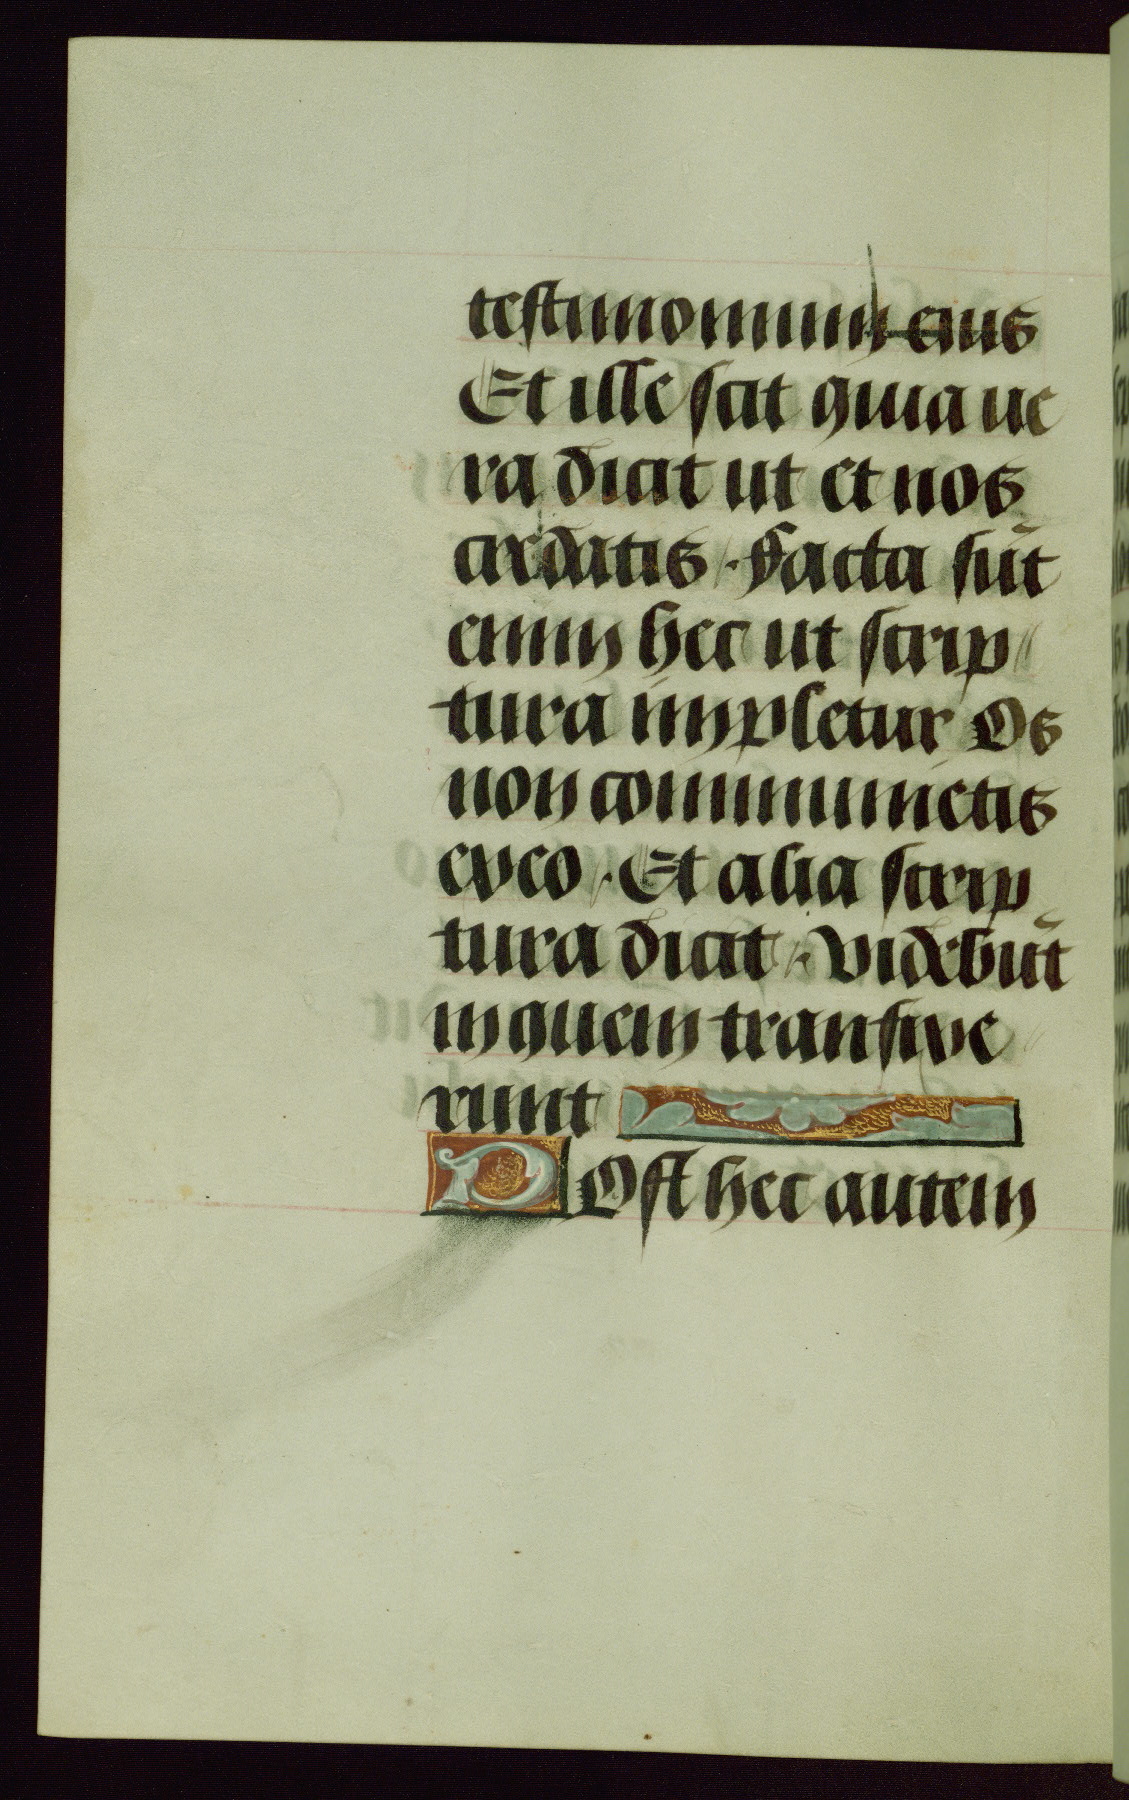 testimonium eius
Et ille scit quia ue
ra dicit ut et nos
credatis. Facta sūt
enim hec ut scrip
tura impletur Os
non comminuetis
ex eo. Et alia scrip
tura dicit. Videbūt
in quem transfixe
runt
Post hec autem